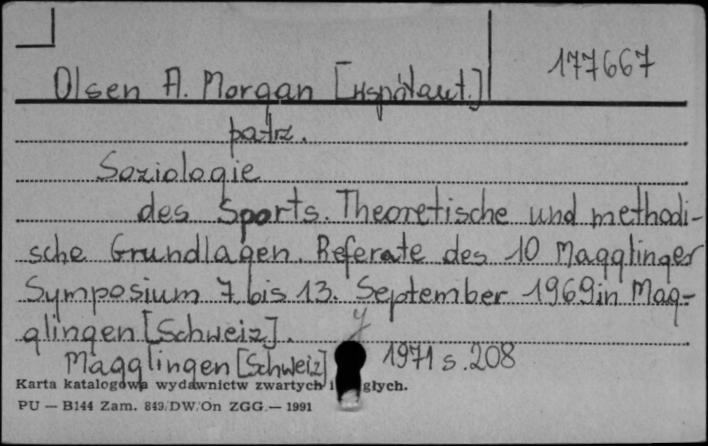 177667
Olsen A. Morgan [współaut.]
patrz.
Soziologie
des Sports. Theoretische und methodi-
sche Grundlagen. Referate des 10 Magglinger
Symposium 7 bis 13. September 1969 in Mag-
glingen [Schweiz].
Magglingen [Schweiz] 1971 s. 208
Karta katalogowa wydawnictw zwartych i głych.
PU — B144 Zam. 849/DW/On ZGG — 1991